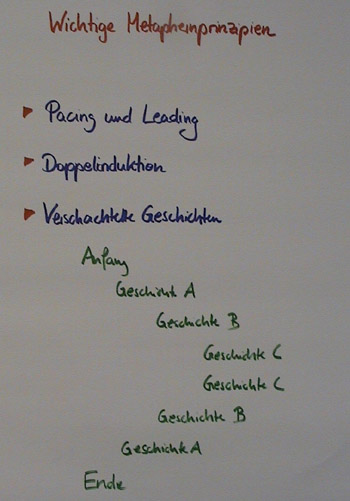 Wichtige Metaphernprinzipien
Pacing und Leading
Doppelinduktion
Verschachtelte Geschichten
Anfang
Geschichte A
Geschichte B
Geschichte C
Geschichte C
Geschichte B
Geschichte A
Ende